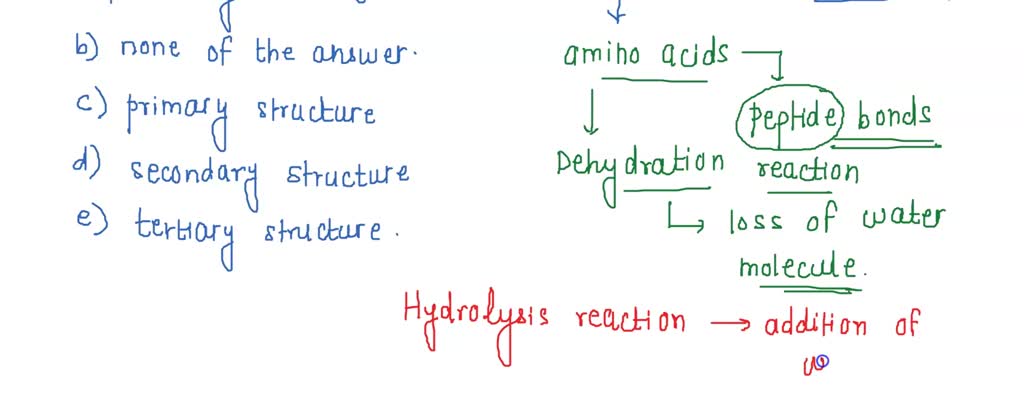 b) none of the answer.
c) primary structure
d) secondary structure
e) tertiary structure.
amino acids
peptide bonds
Dehydration reaction
loss of water
molecule.
Hydrolysis reaction → addition of